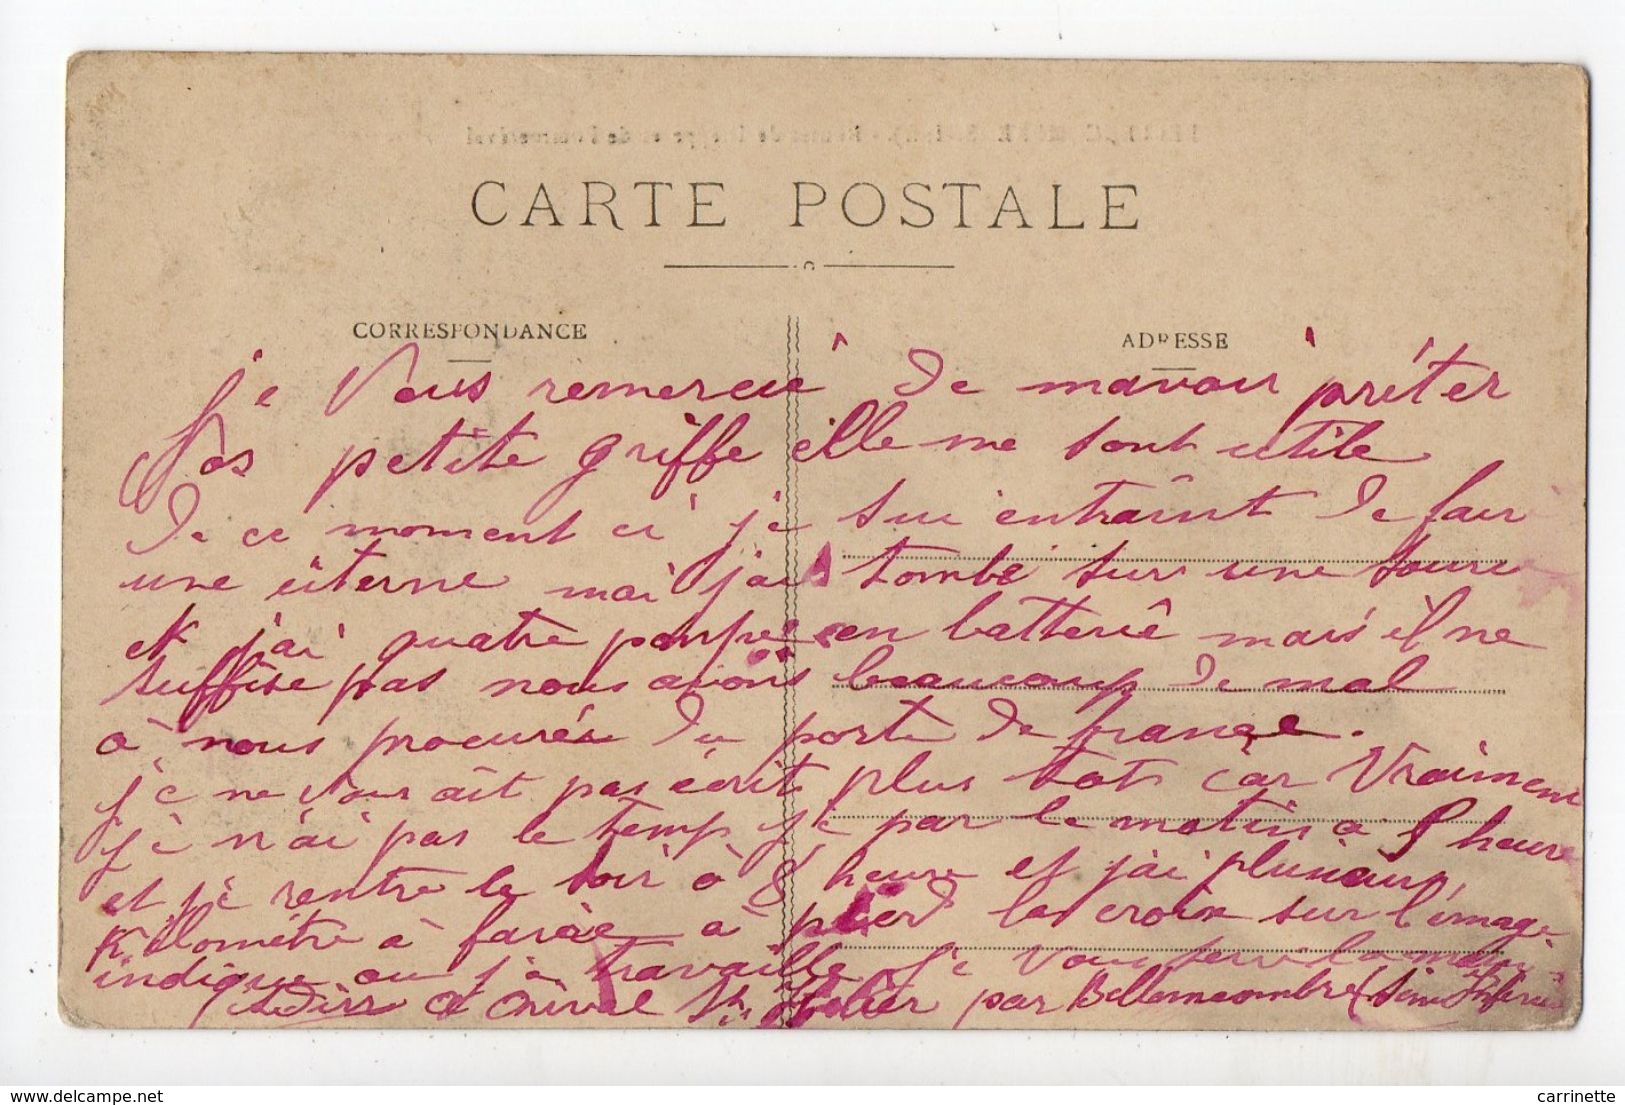 CARTE POSTALE
CORRESPONDANCE
ADRESSE
je vous remercie de mavoir prêter
vos petite griffe elle me sont utile
de ce moment ci je sui entraint de fair
une citerne mai jai tombé sur une source
et j'ai quatre pompe en batterie mais il ne
suffise pas nous avons beaucoup de mal
à nous procurés du porte de france.
je ne vous ait pas écrit plus tot car vraiment
je n'ai pas le temp je par le matin a heure
et je rentre le soir à 8 heure et j'ai plusieurs
Kilomètre à faire à pied la croix sur l'image
indique ou je travaille je vous
par Bellencombre
delcampe.net
carrinette